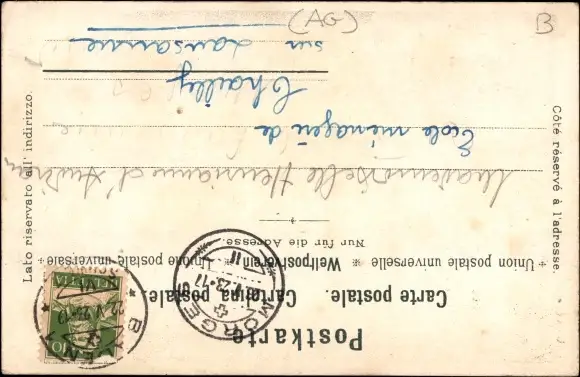 Postkarte
Carte postale. Cartolina postale.
Union postale universelle Weltpostverein Unione postale universale
Nur für die Adresse.
Côté réservé à l'adresse.
Lato riservato all' indirizzo.
HELVETIA
10
MORGES
II
Mademoiselle Hermann d'
Ecole ménagère de
Chailly
sur
Lausanne
(AG)
B